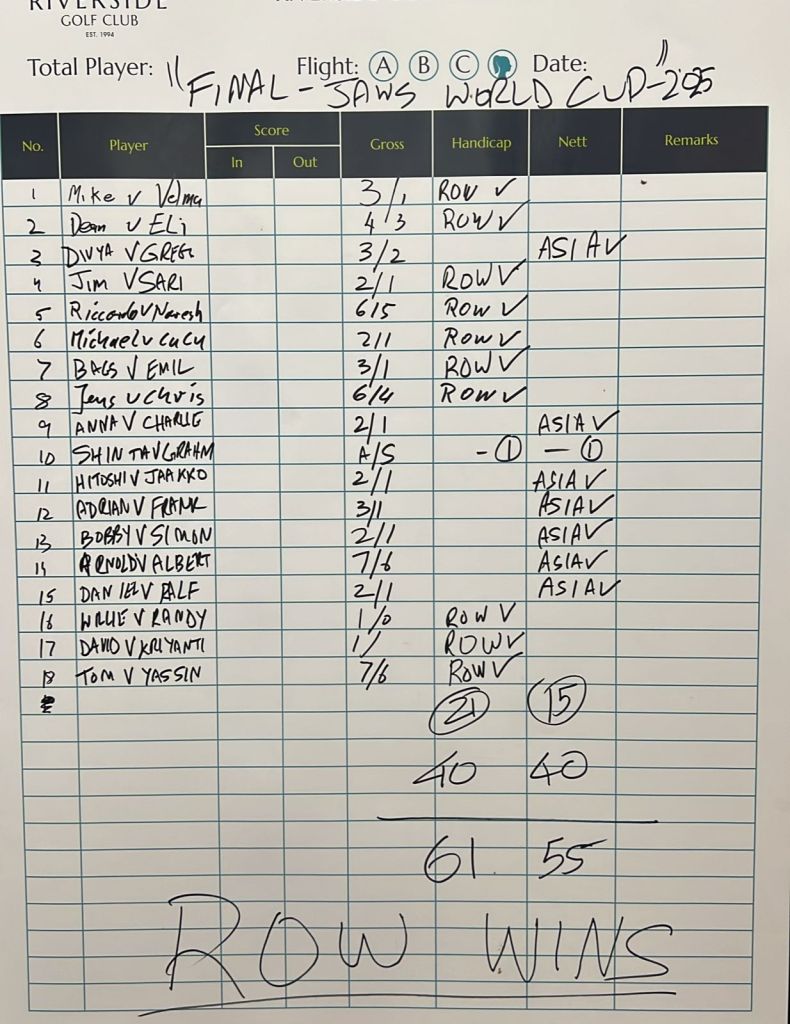 RIVERSIDE
GOLF CLUB
EST. 1994
Total Player: Flight: A B C Date:
"FINAL - JAWS WORLD CUP - 2025"
No. Player Score Gross Handicap Nett Remarks
In Out
1 Mike v Velma 3/1 ROW ✓
2 Dean v ELi 4/3 ROW ✓
3 DIVYA V GREG 3/2 ASIA ✓
4 Jim V SARI 2/1 ROW ✓
5 Riccardo V Naresh 6/5 ROW ✓
6 Michael v CuCu 2/1 ROW ✓
7 BAGS V EMIL 3/1 ROW ✓
8 Jens v Chris 6/4 ROW ✓
9 ANNA V CHARLIE 2/1 ASIA ✓
10 SHINTA V GRAHM A/S - ① - ①
11 HITOSHI V JAAKKO 2/1 ASIA ✓
12 ADRIAN V FRANK 3/1 ASIA ✓
13 BOBBY V SIMON 2/1 ASIA ✓
14 ARNOLD V ALBERT 7/6 ASIA ✓
15 DANIEL V RALF 2/1 ASIA ✓
16 WILLIE V RANDY 1/0 ROW ✓
17 DAVID V KRIYANTI 1/ ROW ✓
18 TOM V YASSIN 7/6 ROW ✓
21 15
40 40
61 55
ROW WINS